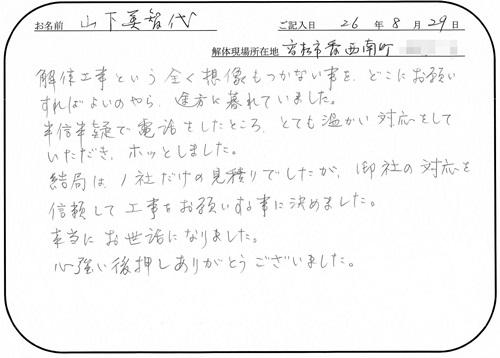 お名前 山下美智代 ご記入日 26年8月29日
解体現場所在地 高松市香西南町
解体工事という全く想像もつかない事を、どこにお願い
すればよいのやら、途方に暮れていました。
半信半疑で電話をしたところ、とても温かい対応をして
いただき、ホッとしました。
結局は1社だけの見積りでしたが、御社の対応を
信頼して工事をお願いする事に決めました。
本当にお世話になりました。
心強い後押しありがとうございました。